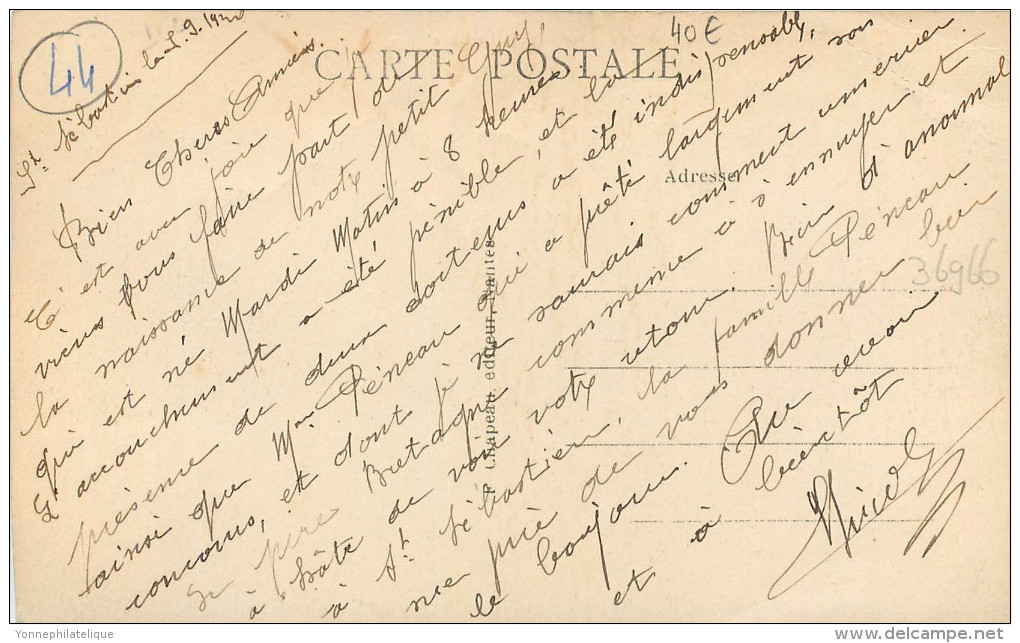 44
St Sébastien le 1.9.1920
CARTE POSTALE
40 €
Adresse
36966
P. Chapeau, editeur, Nantes
Bien Chers Amis.
C'est avec joie que je
viens vous faire part de
la naissance de notre petit Guy,
qui est né Mardi Matin à 8 heures
L'accouchement a été pénible, et la
présence de deux docteurs a été indispensable,
ainsi que Mme Péneau qui a prêté largement son
concours, et dont je ne saurais comment remercier.
Le père Bretagne commence à s'ennuyer et
a hâte de voir votre retour. Rien d'anormal
à St Sébastien, la famille Péneau
me prie de vous donner leur
le bonjour. Au revoir
et à bientôt
Yonnephilatelique
www.delcampe.net